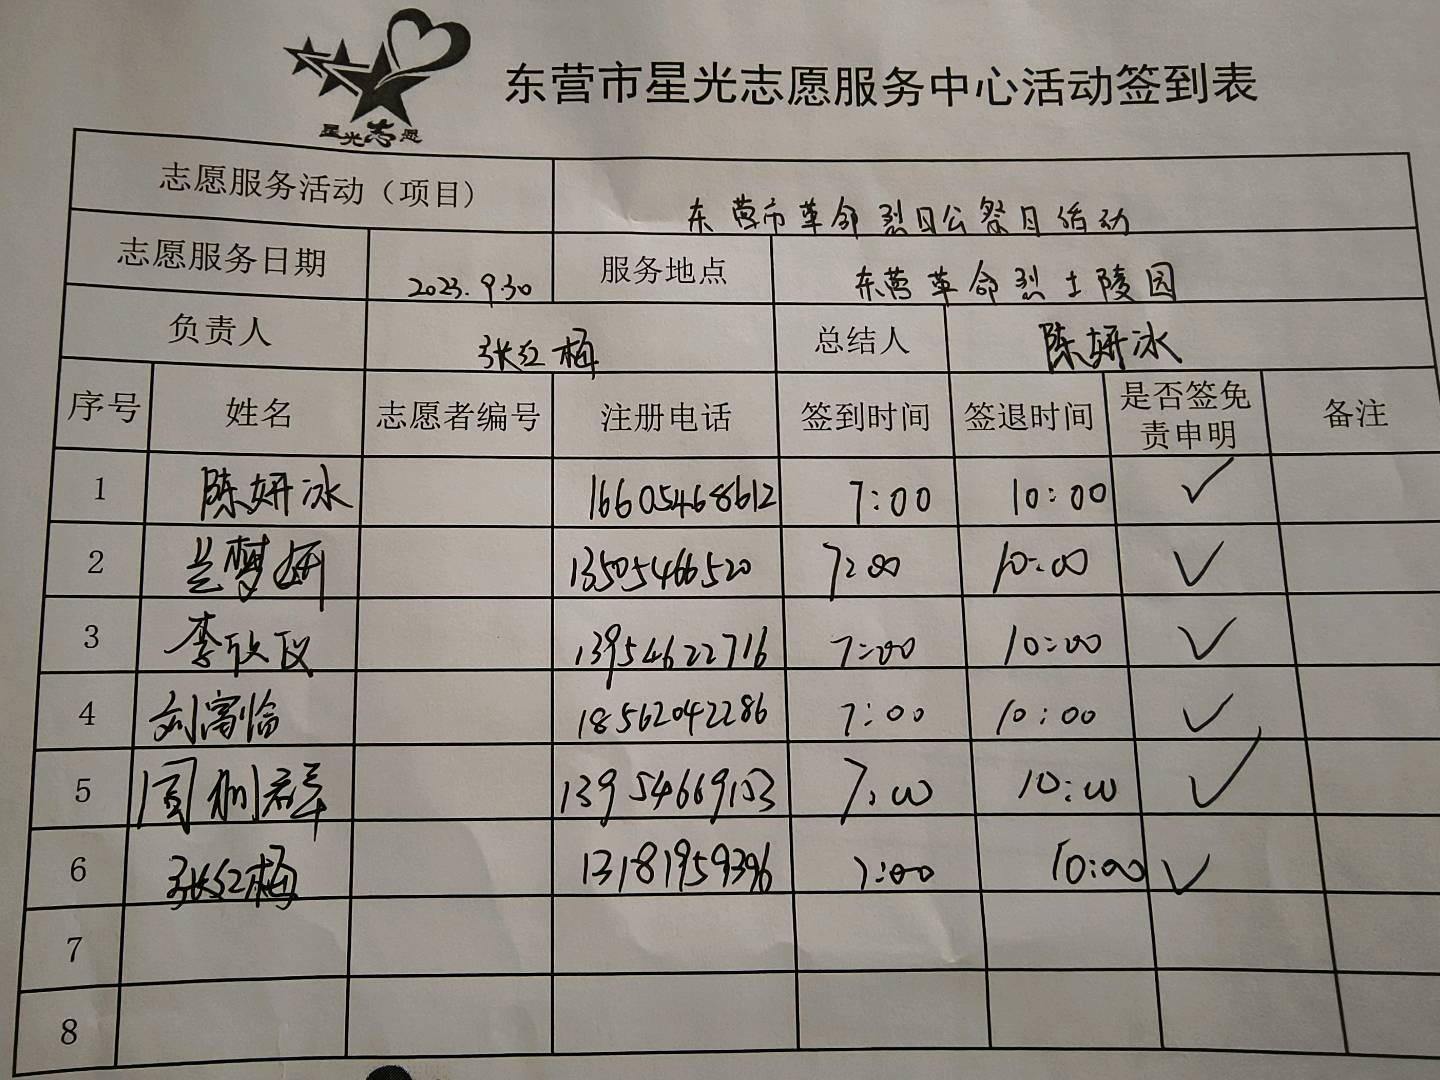 星光志愿
东营市星光志愿服务中心活动签到表
志愿服务活动（项目） 东营市革命烈日公祭日活动
志愿服务日期 2023.9.30 服务地点 东营革命烈士陵园
负责人 张红梅 总结人 陈妍冰
序号 姓名 志愿者编号 注册电话 签到时间 签退时间 是否签免责申明 备注
1 陈妍冰 16605468612 7:00 10:00 ✓
2 兰梦妍 13505466520 7:00 10:00 ✓
3 李欣仪 13954622716 7:00 10:00 ✓
4 刘 18562042286 7:00 10:00 ✓
5 13954669153 7:00 10:00 ✓
6 张红梅 13181959396 7:00 10:00 ✓
7
8